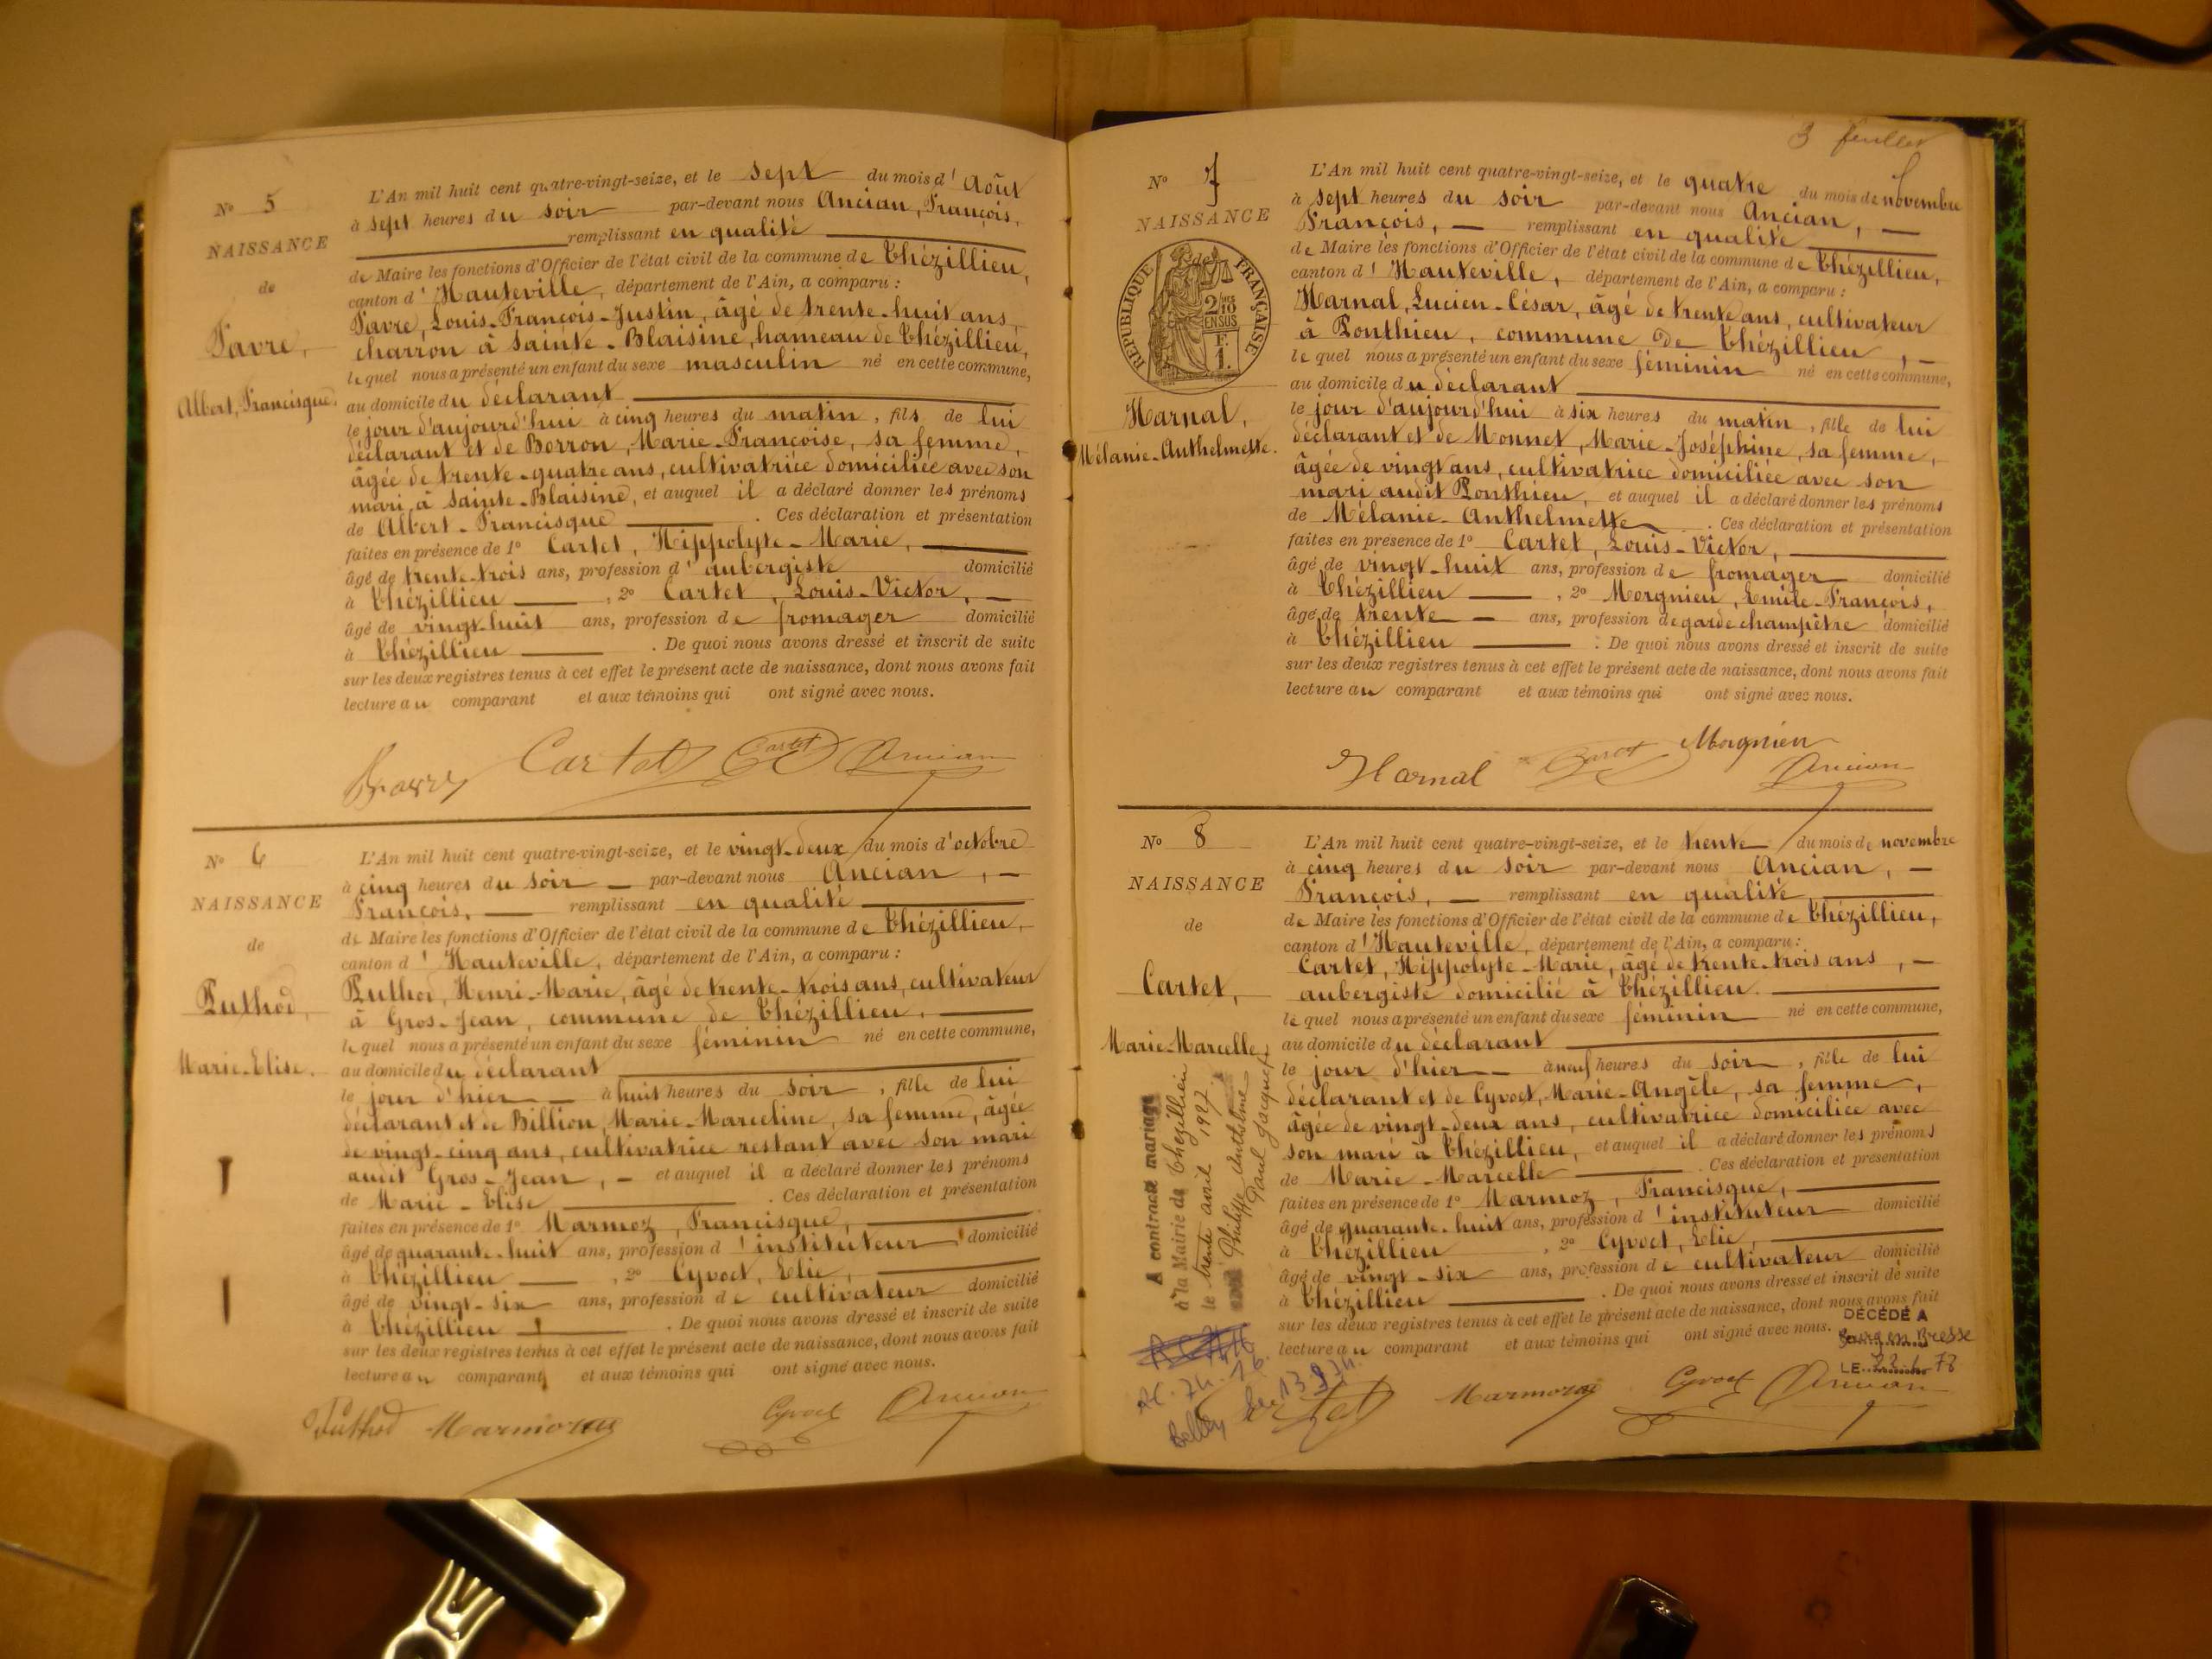 N° 5
NAISSANCE
de
Favre,
Albert, Francisque.
L'An mil huit cent quatre-vingt-seize, et le sept du mois d'Août
à sept heures du soir par-devant nous Ancian, François,
remplissant en qualité
de Maire les fonctions d'Officier de l'état civil de la commune de Thézillieu,
canton d'Hauteville, département de l'Ain, a comparu :
Favre, Louis-François-Justin, âgé de trente-huit ans,
charron à Sainte-Blaisine, hameau de Thézillieu,
lequel nous a présenté un enfant du sexe masculin né en cette commune,
au domicile du déclarant
le jour d'aujourd'hui à cinq heures du matin, fils de lui
déclarant et de Borron, Marie-Françoise, sa femme,
âgée de trente-quatre ans, cultivatrice domiciliée avec son
mari à Sainte-Blaisine, et auquel il a déclaré donner les prénoms
de Albert-Francisque . Ces déclaration et présentation
faites en présence de 1° Cartet, Hippolyte-Marie,
âgé de trente-trois ans, profession d'aubergiste domicilié
à Thézillieu , 2° Cartet, Louis-Victor,
âgé de vingt-huit ans, profession de fromager domicilié
à Thézillieu . De quoi nous avons dressé et inscrit de suite
sur les deux registres tenus à cet effet le présent acte de naissance, dont nous avons fait
lecture au comparant et aux témoins qui ont signé avec nous.
Favre Cartet Cartet Ancian
N° 6
NAISSANCE
de
Puthod,
Marie-Elise.
L'An mil huit cent quatre-vingt-seize, et le vingt-deux du mois d'octobre
à cinq heures du soir par-devant nous Ancian,
François, remplissant en qualité
de Maire les fonctions d'Officier de l'état civil de la commune de Thézillieu,
canton d'Hauteville, département de l'Ain, a comparu :
Puthod, Henri-Marie, âgé de trente-trois ans, cultivateur
à Gros-Jean, commune de Thézillieu,
lequel nous a présenté un enfant du sexe féminin né en cette commune,
au domicile du déclarant
le jour d'hier à huit heures du soir, fille de lui
déclarant et de Billion, Marie-Marceline, sa femme, âgée
de vingt-cinq ans, cultivatrice restant avec son mari
audit Gros-Jean, et auquel il a déclaré donner les prénoms
de Marie-Elise . Ces déclaration et présentation
faites en présence de 1° Marmoz, Francisque,
âgé de quarante-huit ans, profession d'instituteur domicilié
à Thézillieu , 2° Cyvoct, Elie,
âgé de vingt-six ans, profession de cultivateur domicilié
à Thézillieu . De quoi nous avons dressé et inscrit de suite
sur les deux registres tenus à cet effet le présent acte de naissance, dont nous avons fait
lecture au comparant et aux témoins qui ont signé avec nous.
Puthod Marmoz Cyvoct Ancian
3 feuillet
N° 7
NAISSANCE
de
RÉPUBLIQUE FRANÇAISE
2/10
EN SUS
F.
1.
Harnal,
Mélanie-Anthelmette.
L'An mil huit cent quatre-vingt-seize, et le quatre du mois de novembre
à sept heures du soir par-devant nous Ancian,
François, remplissant en qualité
de Maire les fonctions d'Officier de l'état civil de la commune de Thézillieu,
canton d'Hauteville, département de l'Ain, a comparu :
Harnal, Lucien-César, âgé de trente ans, cultivateur
à Ponthieu, commune de Thézillieu,
lequel nous a présenté un enfant du sexe féminin né en cette commune,
au domicile du déclarant
le jour d'aujourd'hui à six heures du matin, fille de lui
déclarant et de Monnet, Marie-Joséphine, sa femme,
âgée de vingt ans, cultivatrice domiciliée avec son
mari audit Ponthieu, et auquel il a déclaré donner les prénoms
de Mélanie-Anthelmette . Ces déclaration et présentation
faites en présence de 1° Cartet, Louis-Victor,
âgé de vingt-huit ans, profession de fromager domicilié
à Thézillieu , 2° Morgnieu, Emile-François,
âgé de trente ans, profession de garde champêtre domicilié
à Thézillieu . De quoi nous avons dressé et inscrit de suite
sur les deux registres tenus à cet effet le présent acte de naissance, dont nous avons fait
lecture au comparant et aux témoins qui ont signé avec nous.
Harnal Cartet Morgnieu
Ancian
N° 8
NAISSANCE
de
Cartet,
Marie-Marcelle.
A contracté mariage
à la Mairie de Thézillieu
le trente avril 1927.
Philippe Anthelme
Paul Jacquet
L'An mil huit cent quatre-vingt-seize, et le trente du mois de novembre
à cinq heures du soir par-devant nous Ancian,
François, remplissant en qualité
de Maire les fonctions d'Officier de l'état civil de la commune de Thézillieu,
canton d'Hauteville, département de l'Ain, a comparu :
Cartet, Hippolyte-Marie, âgé de trente-trois ans,
aubergiste domicilié à Thézillieu.
lequel nous a présenté un enfant du sexe féminin né en cette commune,
au domicile du déclarant
le jour d'hier à neuf heures du soir, fille de lui
déclarant et de Cyvoct, Marie-Angèle, sa femme,
âgée de vingt-deux ans, cultivatrice domiciliée avec
son mari à Thézillieu, et auquel il a déclaré donner les prénoms
de Marie-Marcelle . Ces déclaration et présentation
faites en présence de 1° Marmoz, Francisque,
âgé de quarante-huit ans, profession d'instituteur domicilié
à Thézillieu , 2° Cyvoct, Elie,
âgé de vingt-six ans, profession de cultivateur domicilié
à Thézillieu . De quoi nous avons dressé et inscrit de suite
sur les deux registres tenus à cet effet le présent acte de naissance, dont nous avons fait
lecture au comparant et aux témoins qui ont signé avec nous.
DÉCÉDÉ A
Bourg en Bresse
Cartet Marmoz Cyvoct Ancian